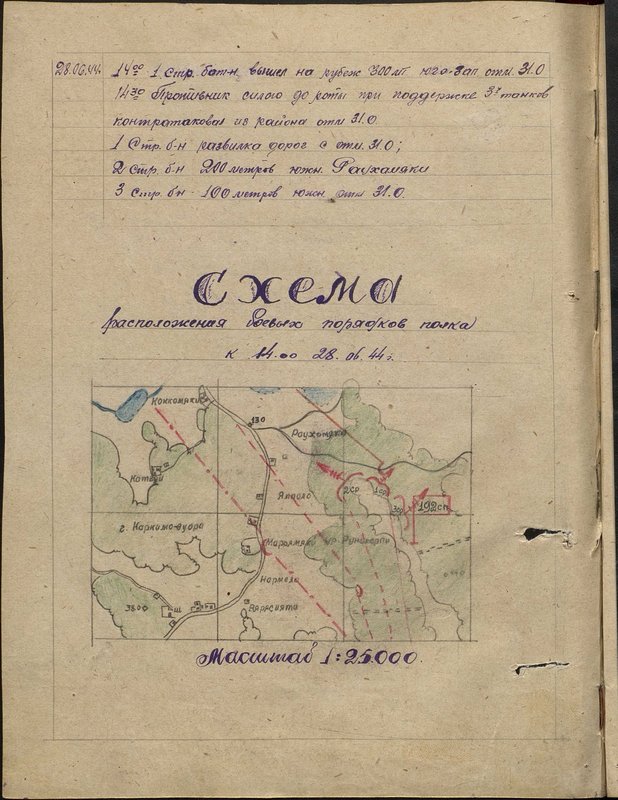 28.06.44г. 14⁰⁰ 1 Стр. бат-н вышел на рубеж 300 мт юго-зап отм. 31.0
14³⁰ Противник силою до роты при поддержке 3х танков
контратаковал из района отм 31.0
1 Стр. б-н развилка дорог с отм. 31.0;
2 Стр. б-н 200 метров южн. Раухамяки
3 Стр. б-н - 100 метров южн. отм 31.0.
Схема
расположения боевых порядков полка
к 14.00 28.06.44 г.
Коккомяки
130
Раухомяки
Яндоло
2ср
1ср
3ср
192сп
г. Каркома-вуори
Нармела
Вярясиятя
3800
Масштаб 1:25000.